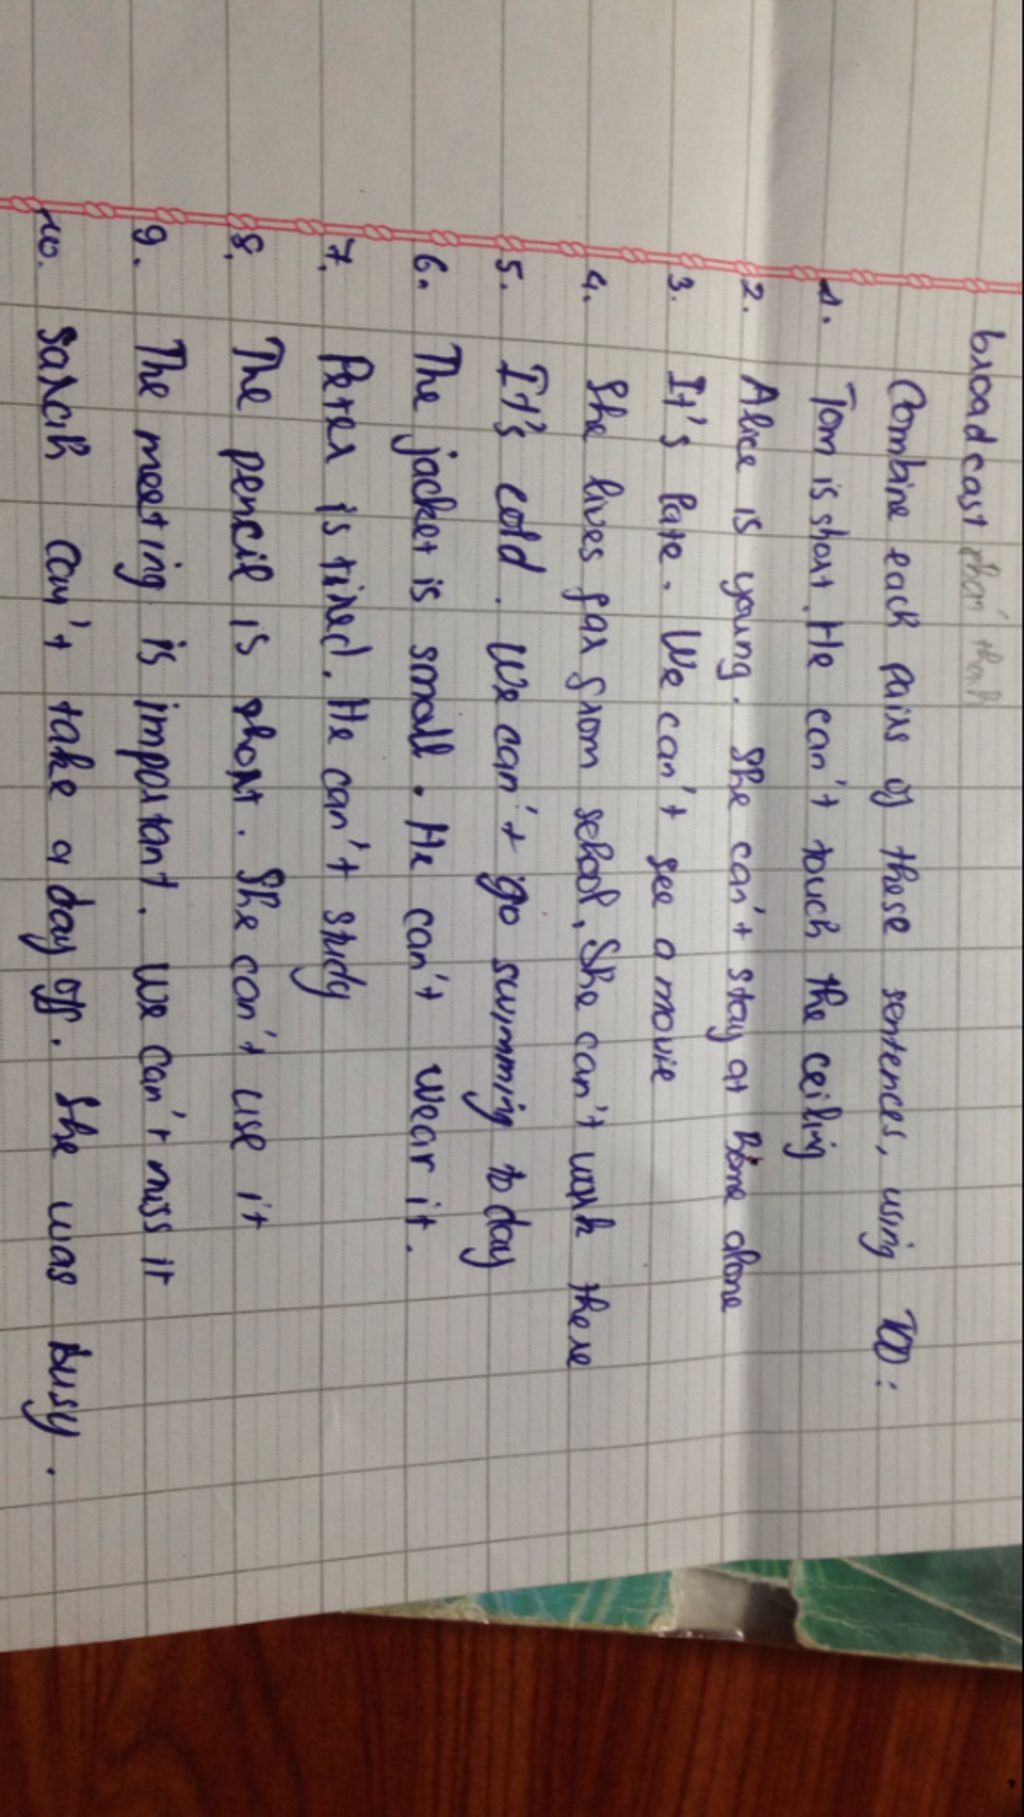 broadcast than than
Combine each pairs of these sentences, using TOO:
1. Tom is short. He can't touch the ceiling
2. Alice is young. She can't stay at home alone
3. It's late. We can't see a movie
4. She lives far from school. She can't walk there
5. It's cold. We can't go swimming today
6. The jacket is small. He can't wear it.
7. Peter is tired. He can't study
8. The pencil is short. She can't use it
9. The meeting is important. We can't miss it
10. Sarah can't take a day off. She was busy.